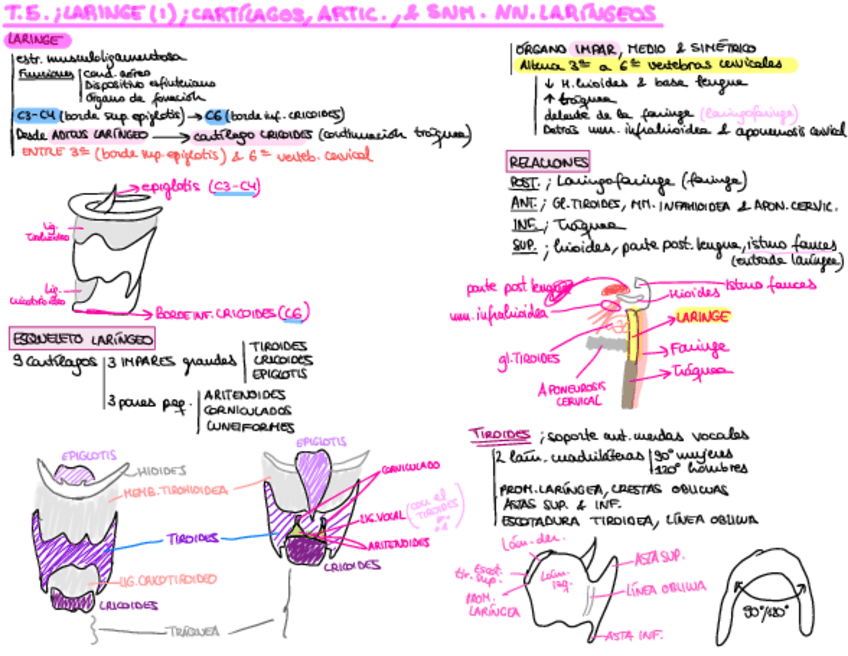 T.5. ; LARINGE (1) ; CARTÍLAGOS, ARTIC., & SNM. NN. LARÍNGEOS
LARINGE
estr. musculoligamentosa
Funciones
cond. aéreo
Dispositivo esfinteriano
Órgano de fonación
C3-C4 (borde sup. epiglotis) → C6 (borde inf. CRICOIDES)
Desde ADITUS LARÍNGEO → cartílago CRICOIDES (continuación tráquea)
ENTRE 3ª (borde sup. epiglotis) & 6ª verteb. cervical
epiglotis (C3-C4)
Lig.
Lig.
BORDE INF. CRICOIDES (C6)
ESQUELETO LARÍNGEO
9 cartílagos
3 IMPARES grandes
TIROIDES
CRICOIDES
EPIGLOTIS
3 pares peq.
ARITENOIDES
CORNICULADOS
CUNEIFORMES
EPIGLOTIS
HIOIDES
MEMB. TIROHIOIDEA
TIROIDES
LIG. CRICOTIROIDEO
CRICOIDES
TRÁQUEA
EPIGLOTIS
CORNICULADO
LIG. VOCAL (con el TIROIDES
ARITENOIDES
CRICOIDES
ÓRGANO IMPAR, MEDIO & SIMÉTRICO
Altura 3ª a 6ª vertebras cervicales
↓ H. hioides & base lengua
↑ tráquea
delante de la faringe (laringofaringe)
Detrás mm. infrahioidea & aponeurosis cervical
RELACIONES
POST. ; Laringofaringe (faringe)
ANT. ; Gl. TIROIDES, MM. INFRAHIOIDEA & APON. CERVIC.
INF. ; Tráquea
SUP. ; hioides, parte post. lengua, istmo fauces
(entrada laringe)
parte post. lengua
Istmo fauces
Hioides
mm. infrahioidea
LARINGE
gl. TIROIDES
Faringe
Tráquea
APONEUROSIS
CERVICAL
TIROIDES ; soporte ant. cuerdas vocales
2 lám. cuadriláteras
90° mujeres
120° hombres
PROM. LARÍNGEA, CRESTAS OBLICUAS
ASTAS SUP. & INF.
ESCOTADURA TIROIDEA, LÍNEA OBLICUA
Lám. der.
Escot.
tir. sup.
PROM.
LARÍNGEA
Lám.
izq.
ASTA SUP.
LÍNEA OBLICUA
ASTA INF.
90°/120°